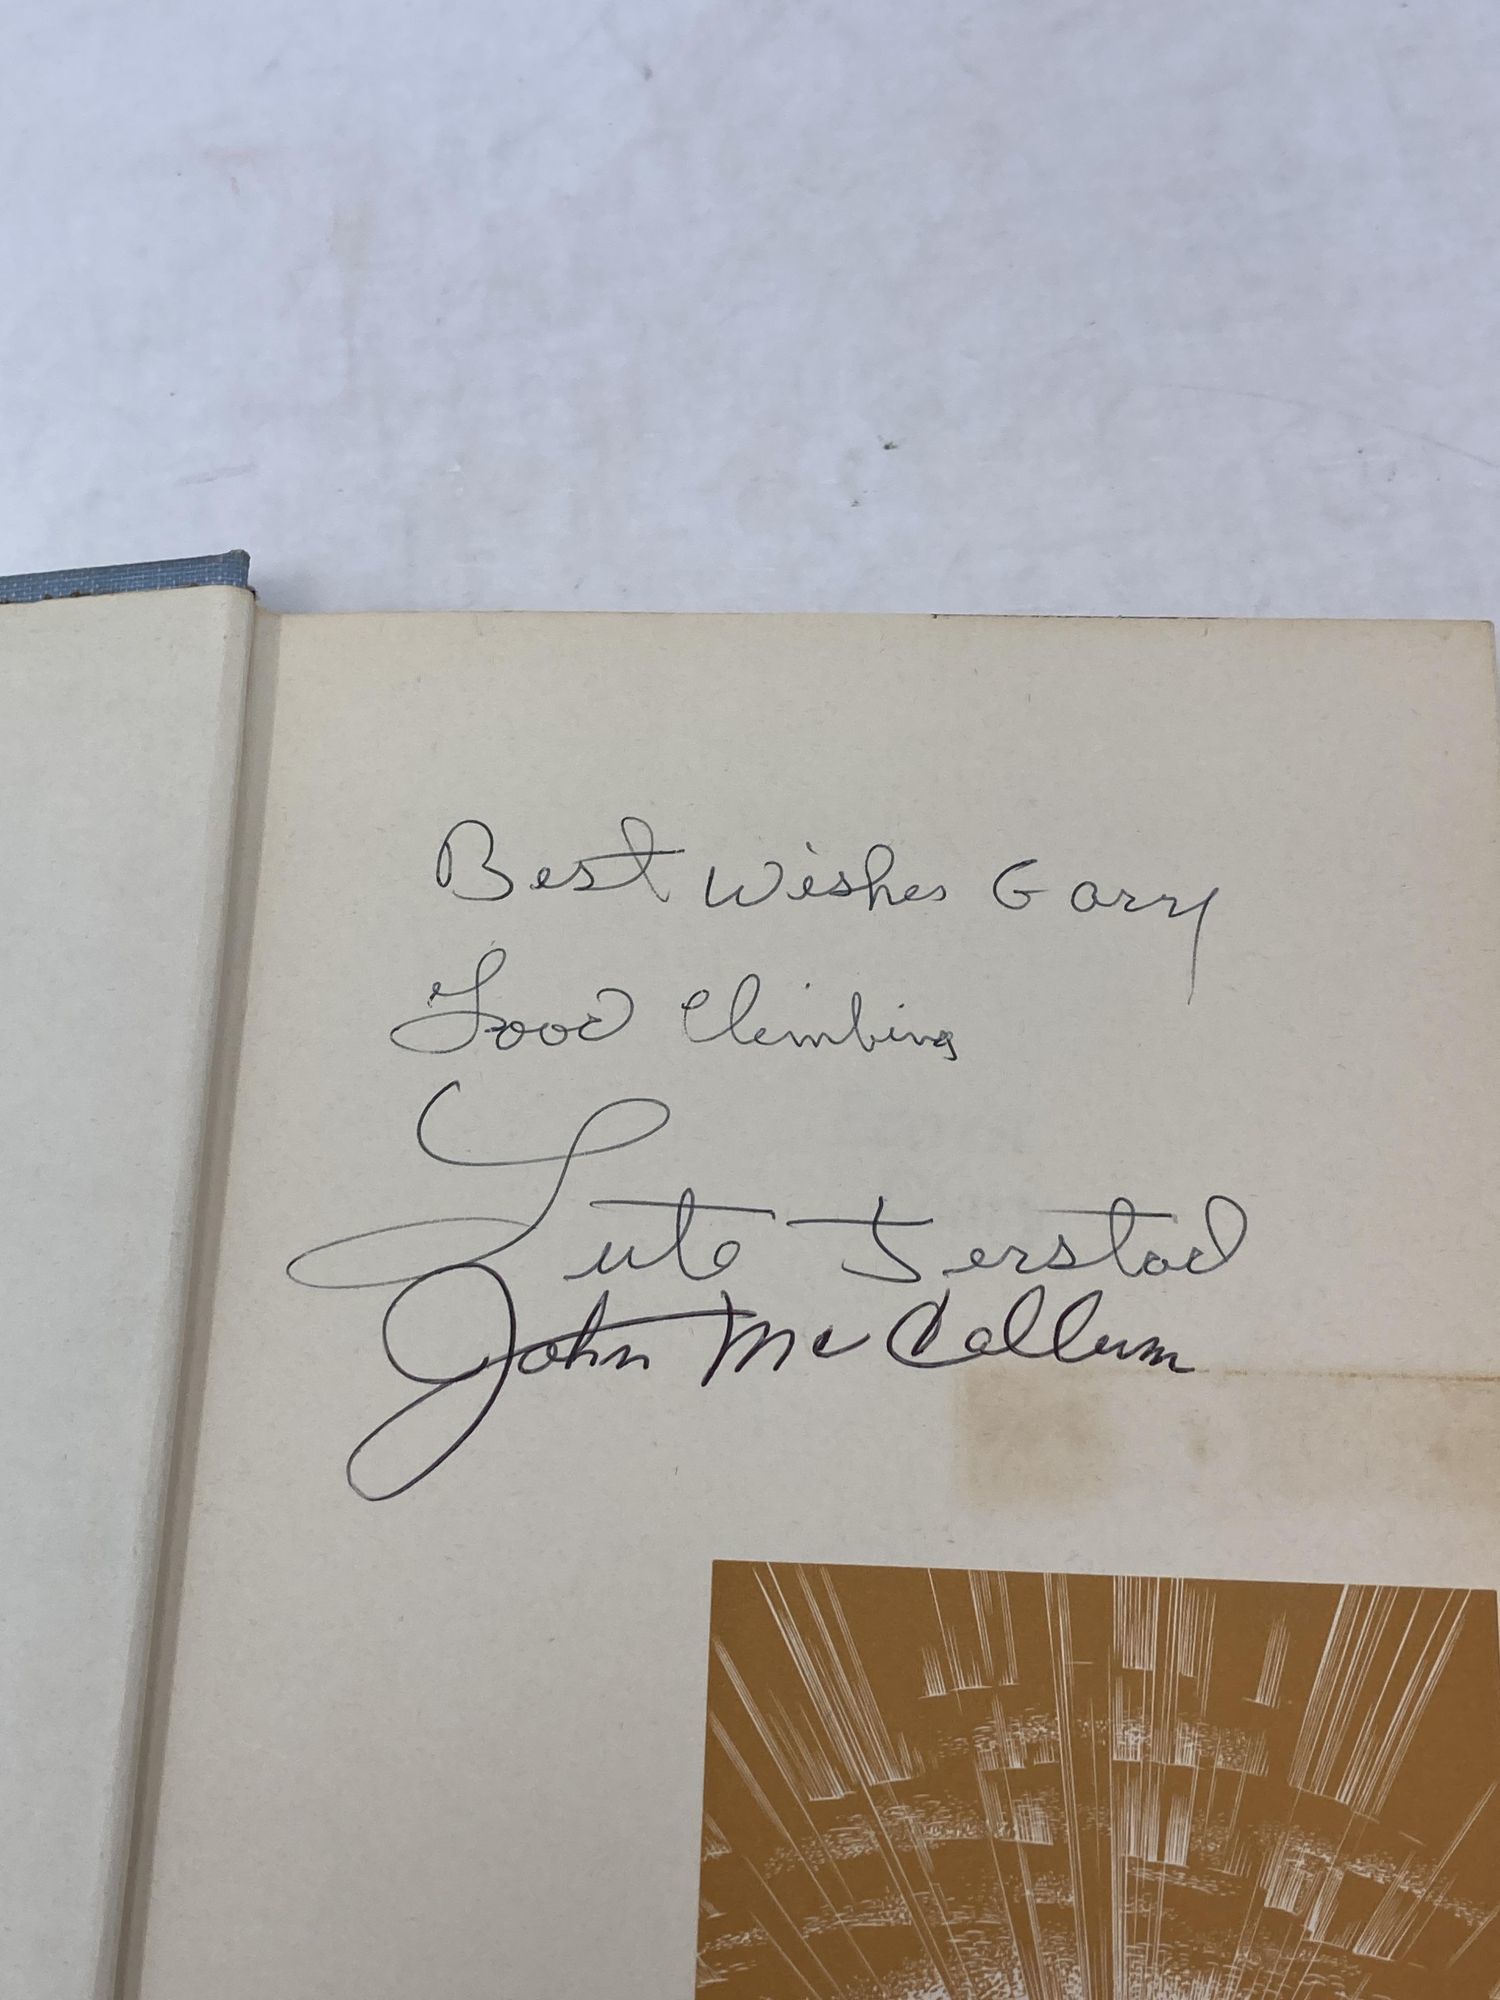 Best Wishes Gary
Good Climbing
Lute Jerstad
John McCallum